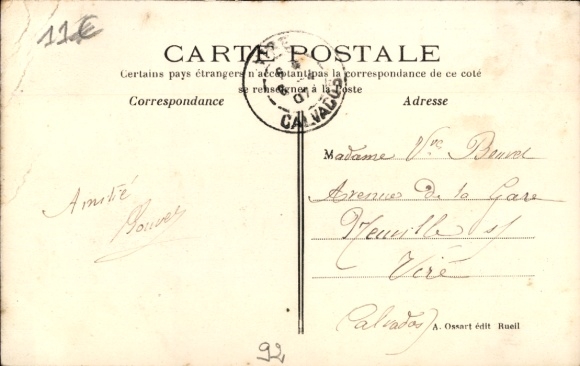 11€
CARTE POSTALE
Certains pays étrangers n'acceptant pas la correspondance de ce coté
se renseigner à la Poste
Correspondance
Adresse
VIRE
CALVADOS
Madame Vve Bouvet
Avenue de la Gare
Neuville sf
Viré
(Calvados)
Amitié
Bouvet
A. Ossart édit Rueil
92